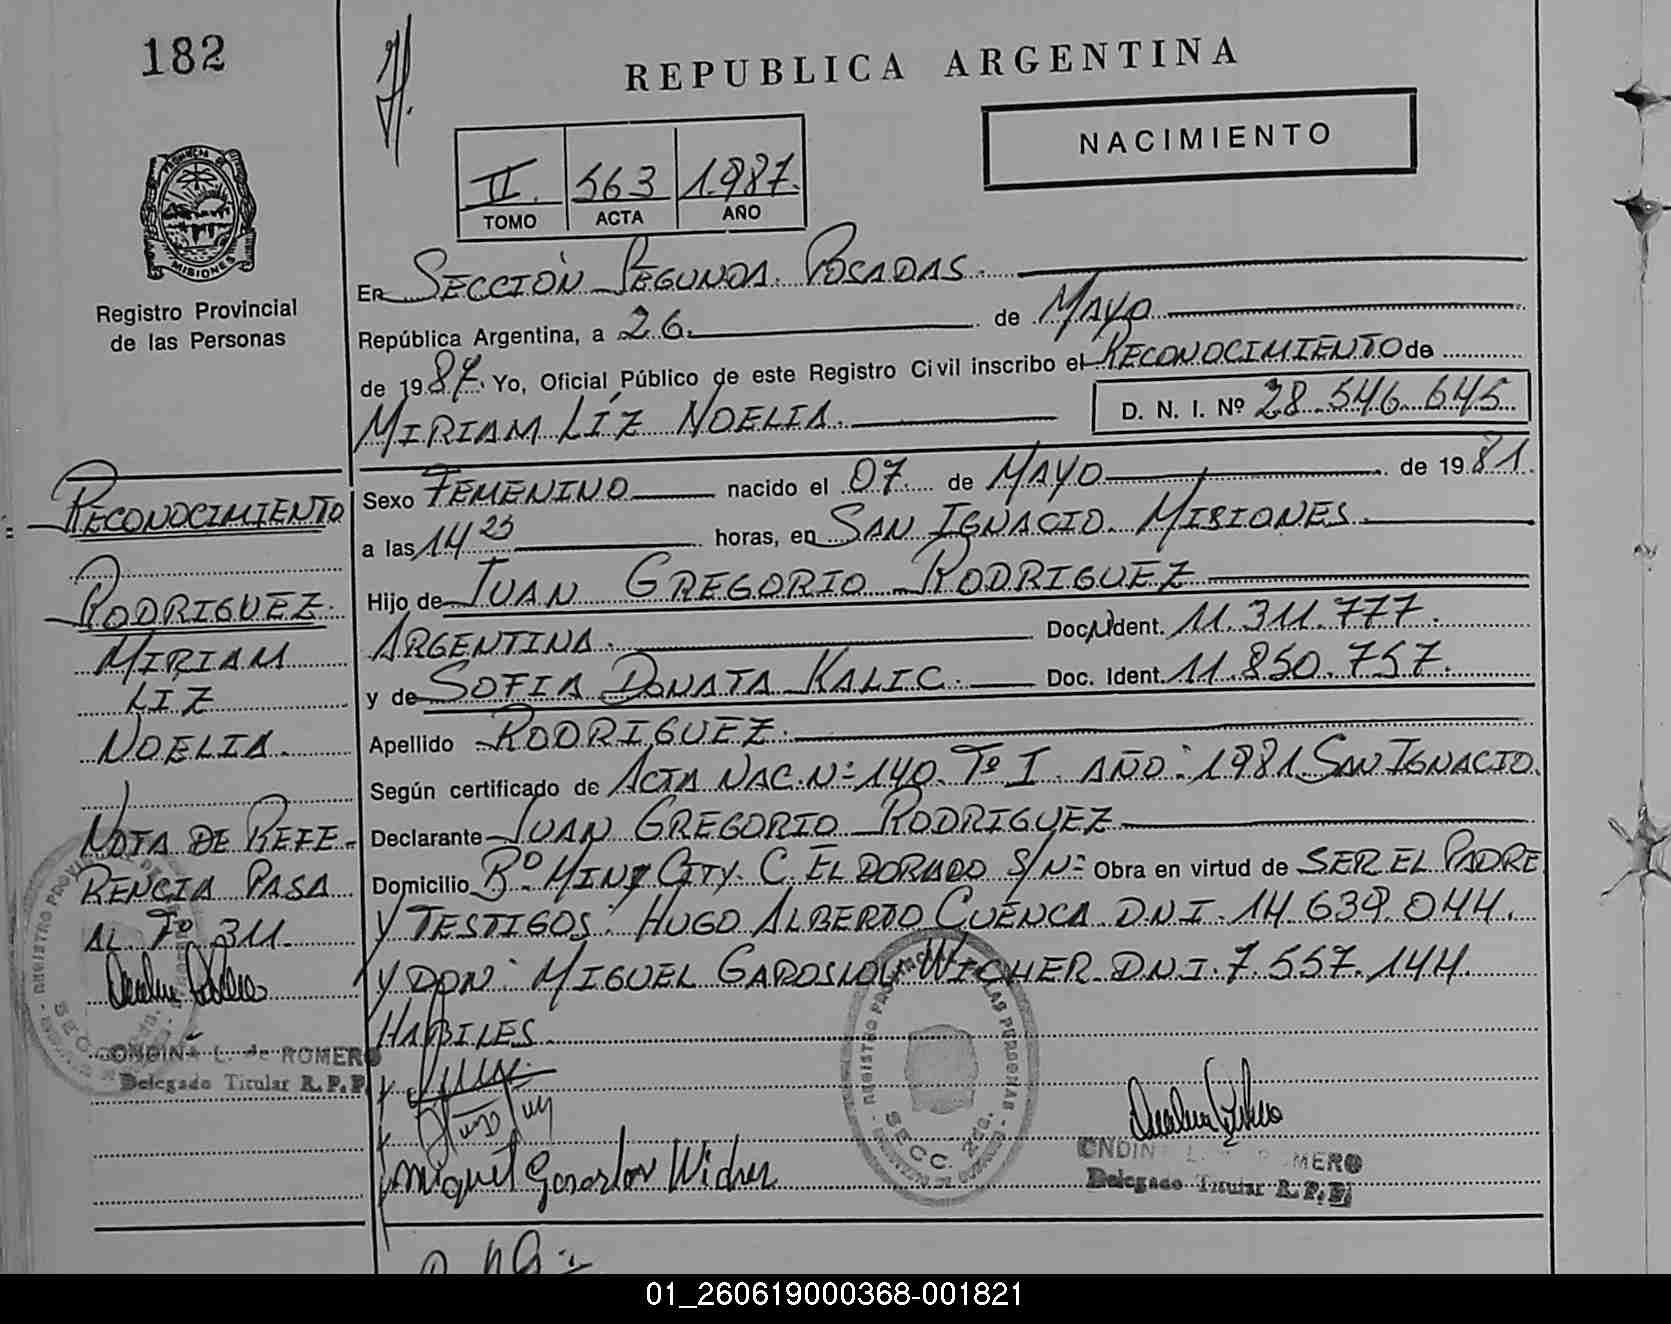 182
REPUBLICA ARGENTINA
NACIMIENTO
II. 563 1.987.
TOMO ACTA AÑO
PROVINCIA DE
MISIONES
Registro Provincial
de las Personas
En SECCIÓN SEGUNDA. POSADAS.
República Argentina, a 26. de MAYO
de 1987. Yo, Oficial Público de este Registro Civil inscribo el RECONOCIMIENTO de
MIRIAM LÍZ NOELIA. D. N. I. Nº 28.546.645
Sexo FEMENINO nacido el 07 de MAYO de 1981.
a las 14 25 horas, en SAN IGNACIO. MISIONES.
Hijo de JUAN GREGORIO RODRIGUEZ
ARGENTINA. Doc. Ident. 11.311.777.
y de SOFIA DONATA KALIC. Doc. Ident. 11.850.757.
Apellido RODRIGUEZ.
Según certificado de ACTA NAC. Nº 140. Tº I. AÑO: 1981 SAN IGNACIO.
Declarante JUAN GREGORIO RODRIGUEZ
Domicilio Bº MINI CITY. C. EL DORADO S/Nº Obra en virtud de SER EL PADRE
Y TESTIGOS: HUGO ALBERTO CUENCA DNI. 14.639.044.
Y DON: MIGUEL WICHER DNI. 7.557.144.
HABILES
RECONOCIMIENTO
RODRIGUEZ.
MIRIAM
LIZ
NOELIA.
NOTA DE REFE-
RENCIA PASA
AL Fº 311.
ONDINA L. de ROMERO
Delegado Titular R. P. P.
REGISTRO PROVINCIAL DE LAS PERSONAS
SECC. 2da.
Miguel Wicher
ONDINA L. ROMERO
Delegado Titular R. P. P.
01_260619000368-001821